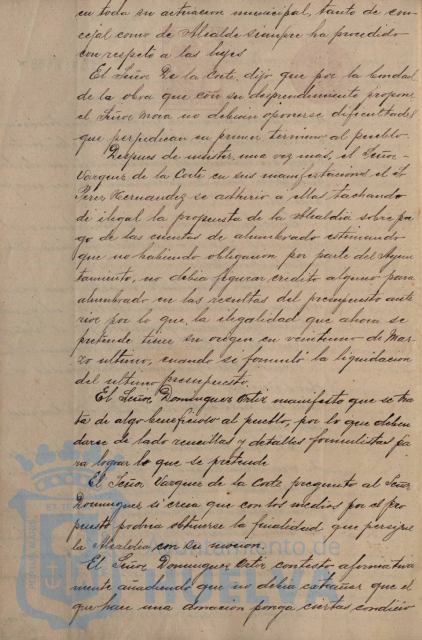 en toda su actuacion municipal, tanto de con-
cejal como de Alcalde siempre ha procedido
con respeto a las leyes
El Señor De la Corte, dijo que por la bondad
de la obra que con su desprendimiento propone
el Señor Mora no debieran oponerse dificultades
que perjudican en primer termino al pueblo.
Despues de insistir, una vez mas, el Señor
Vazquez de la Corte en sus manifestaciones el Sr
Perez Hernandez se adhirio a ellas tachando
de ilegal la propuesta de la Alcaldia sobre pa-
go de las cuentas de alumbrado estimando
que no habiendo obligacion por parte del Ayun-
tamiento, no debia figurar credito alguno para
alumbrado en las resultas del presupuesto ante
rior por lo que la ilegalidad que ahora se
pretende tiene su origen en veintiuno de Mar-
zo ultimo, cuando se formuló la liquidacion
del ultimo presupuesto.
El Señor Dominguez Ortiz manifesto que se tra
ta de algo beneficioso al pueblo, por lo que deben
darse de lado rencillas y detalles formulistas pa
ra lograr lo que se pretende
El Señor Vazquez de la Corte pregunto al Señor
Dominguez si creia que con los medios por el pro
puesto podria obtenerse la finalidad que persigue
la Alcaldia con su mocion.
El Señor Dominguez Ortiz contesto afirmativa
mente añadiendo que no debia extrañar que el
que hace una donacion ponga ciertas condicio
Ayuntamiento de
HUELVA